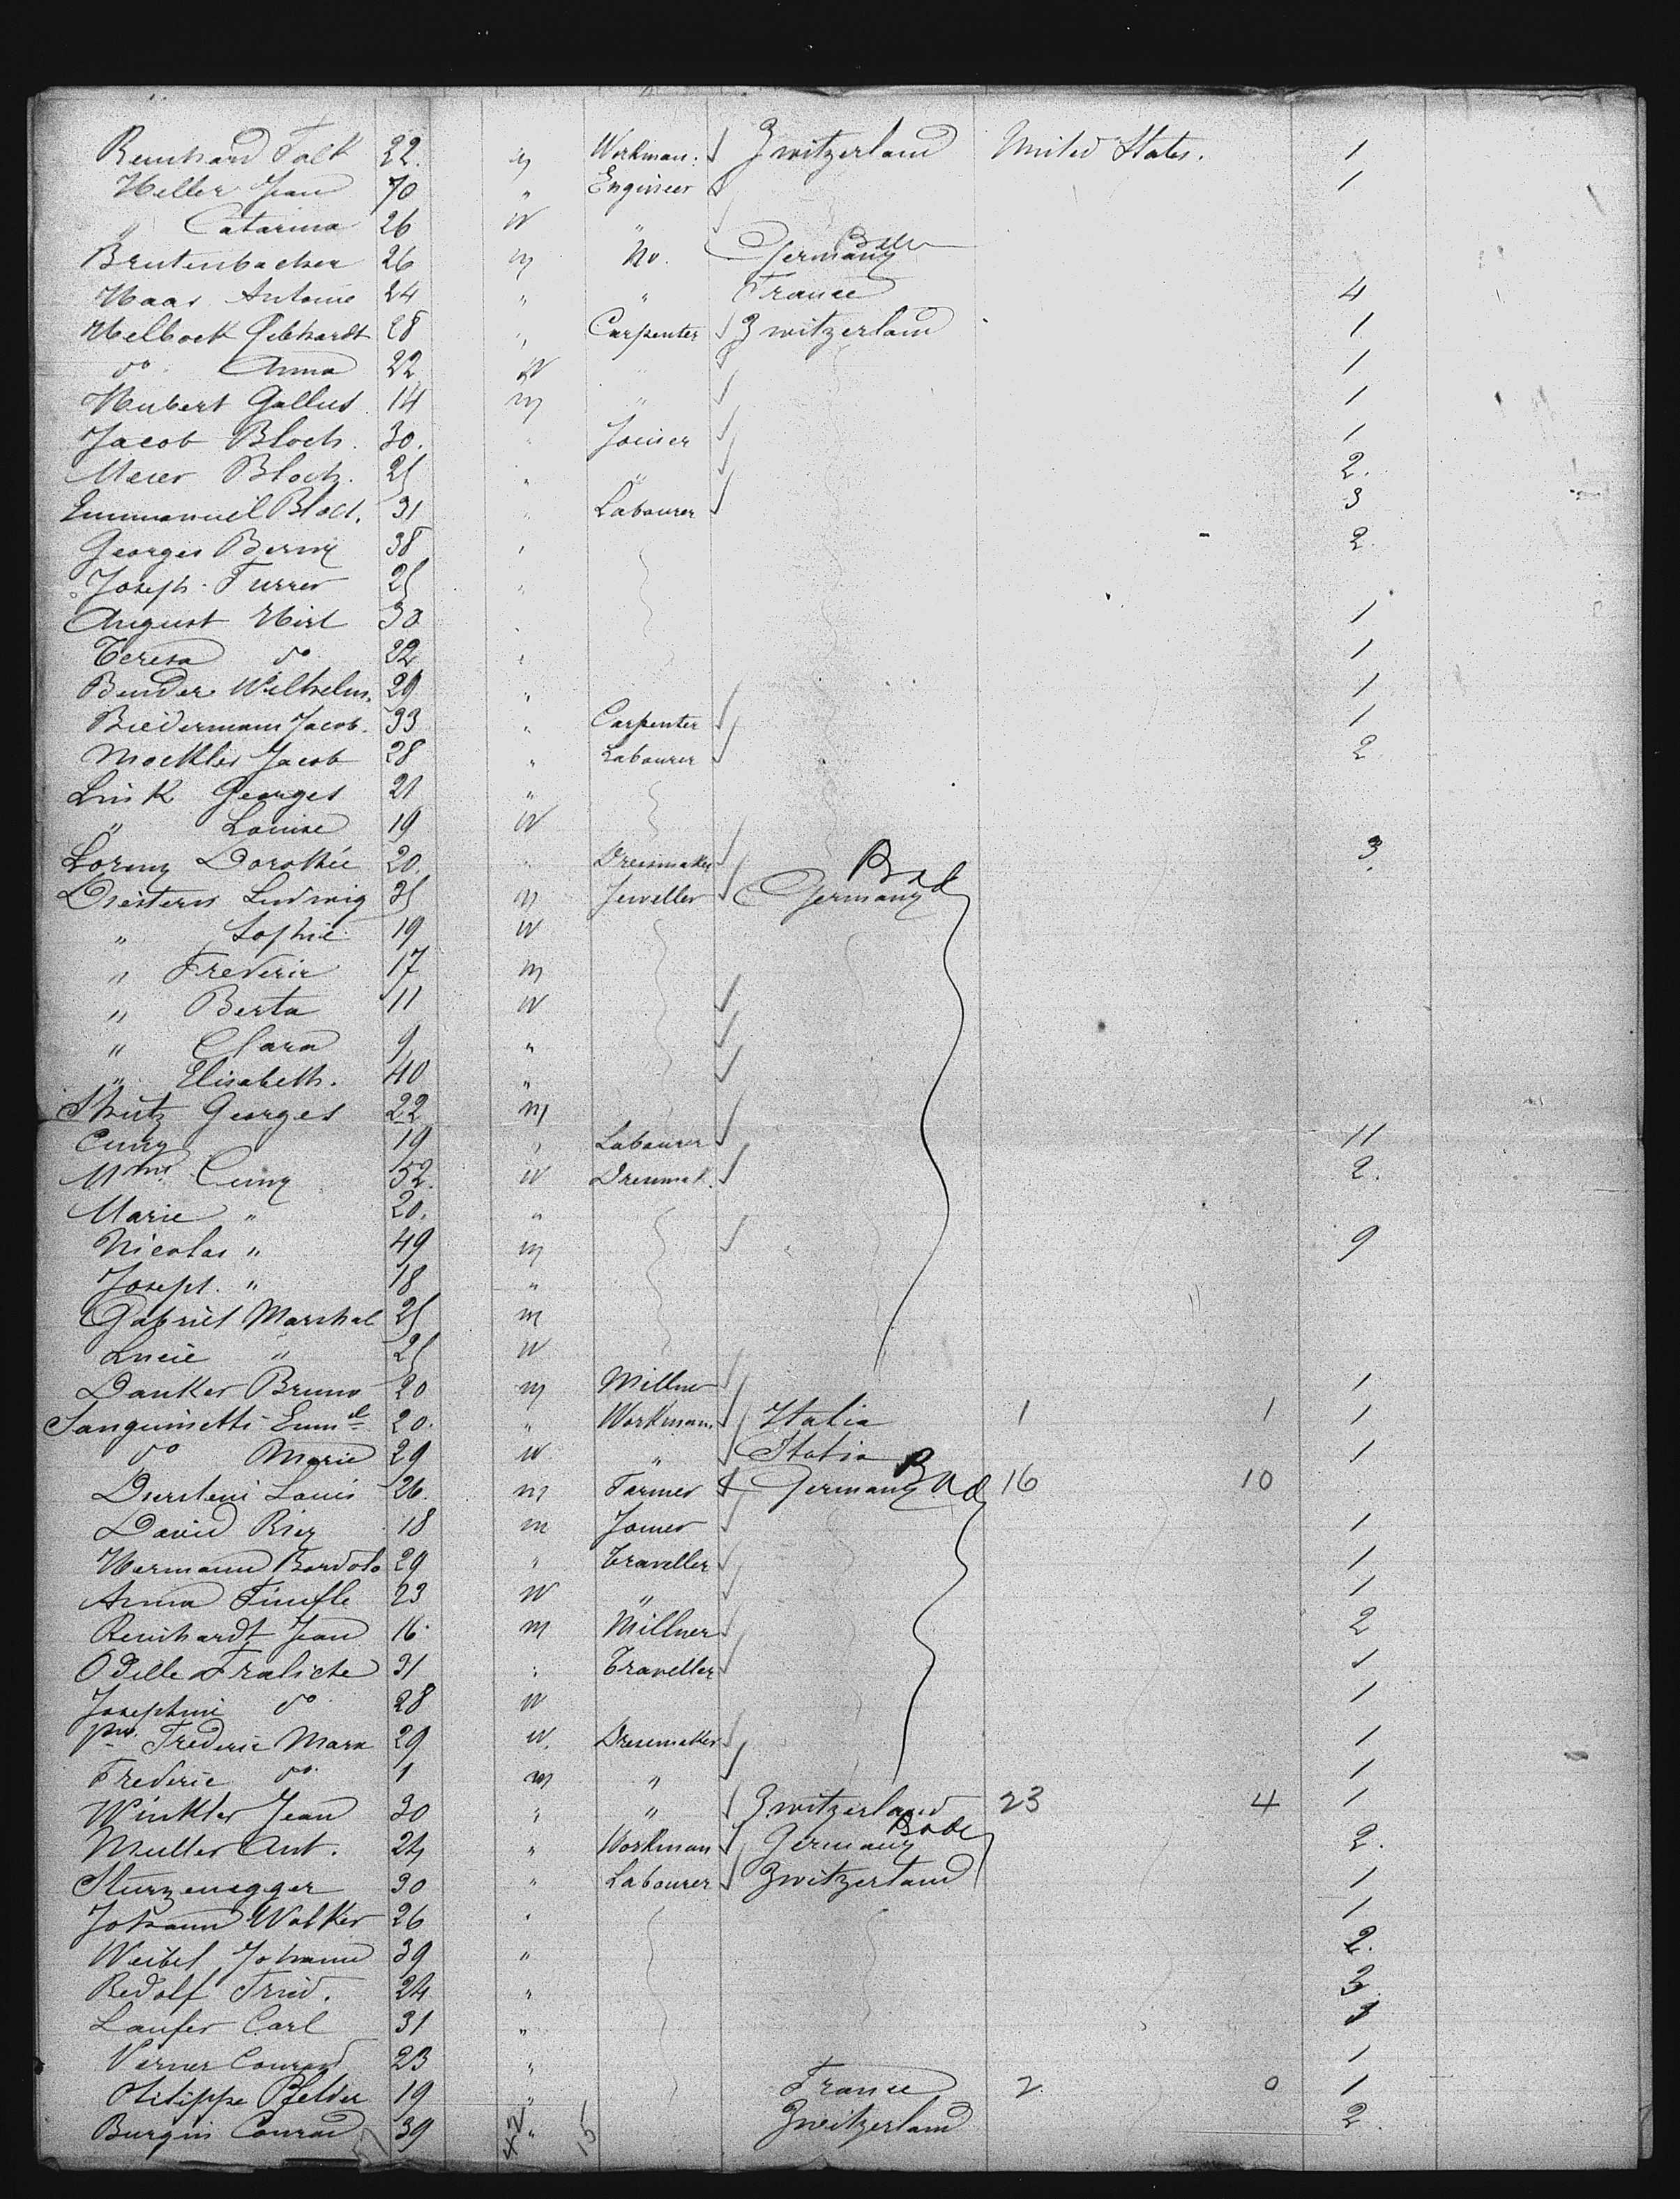 Reinhard Falk 22. m Workman. Zwitzerland United States. 1
Heller Jean 70 " Engineer 1
" Catarina 26 W "
Breitenbacher 26 m No. Germany Baden
Haas Antoine 24 " " France 4
Helbock Gebhardt 28 " Carpenter Zwitzerland 1
do Anna 22 W " 1
Hubert Gallus 14 m " 1
Jacob Bloch. 30. " Joiner 1
Meier Bloch. 25 " " 2.
Emmanuel Bloch. 31 " Labourer 3
Georges 38 " 2.
Joseph Furrer 25 "
August Hirt 30 " 1
Teresa do 22 " 1
Bender Wilhelm. 29 " 1
Biedermann Jacob. 33 " Carpenter 1
Mockler Jacob 28 " Labourer 2
Link Georges 21 "
" Louise 19 W
Lorenz Dorothée 20. " Dressmaker 3.
Ludwig 35 m Jeweller Germany Bad
" Sophie 19 W
" Frederic 17 m
" Berta 11 W
" Clara 9 "
" Elisabeth. 40 "
Georges 22 m
Cuny 19 " Labourer 11
Mme Cuny 52. W Dressmak. 2.
Marie " 20. "
Nicolas " 49 m 9
Joseph. " 18 "
Gabriel Marshal 25 m
Lucie " 25 W
Danker Bruno 20 m Millner 1
Sanguinetti Emml 20. " Workman Italia 1 1 1
do Marie 29 W " Italia 1
Louis 26. m Farmer Germany Bad 16 10
David 18 m Joiner 1
Hermann 29 " Traveller 1
Anna 23 W " 1
Reinhardt Jean 16. m Millner 2
Odille 31 " Traveller 1
Josephine do 28 W 1
Frederic Marx 29 W. Dressmaker 1
Frederic do 1 m " 1
Winkler Jean 30 " " Zwitzerland 23 4 1
Muller Ant. 24 " Workman Germany Bade 2.
Sturzenegger 30 " Labourer Zwitzerland 1
Johann Walker 26 " 1
Weibel Johann 39 " 2.
Redolf Fried. 24 " 3
Laufer Carl 31 " 1
Verner Conrad 23 " 1
Philippe 19 " France 2. 0 1
Burgin Conrad 39 " Zweitzerland 2
57 42 15